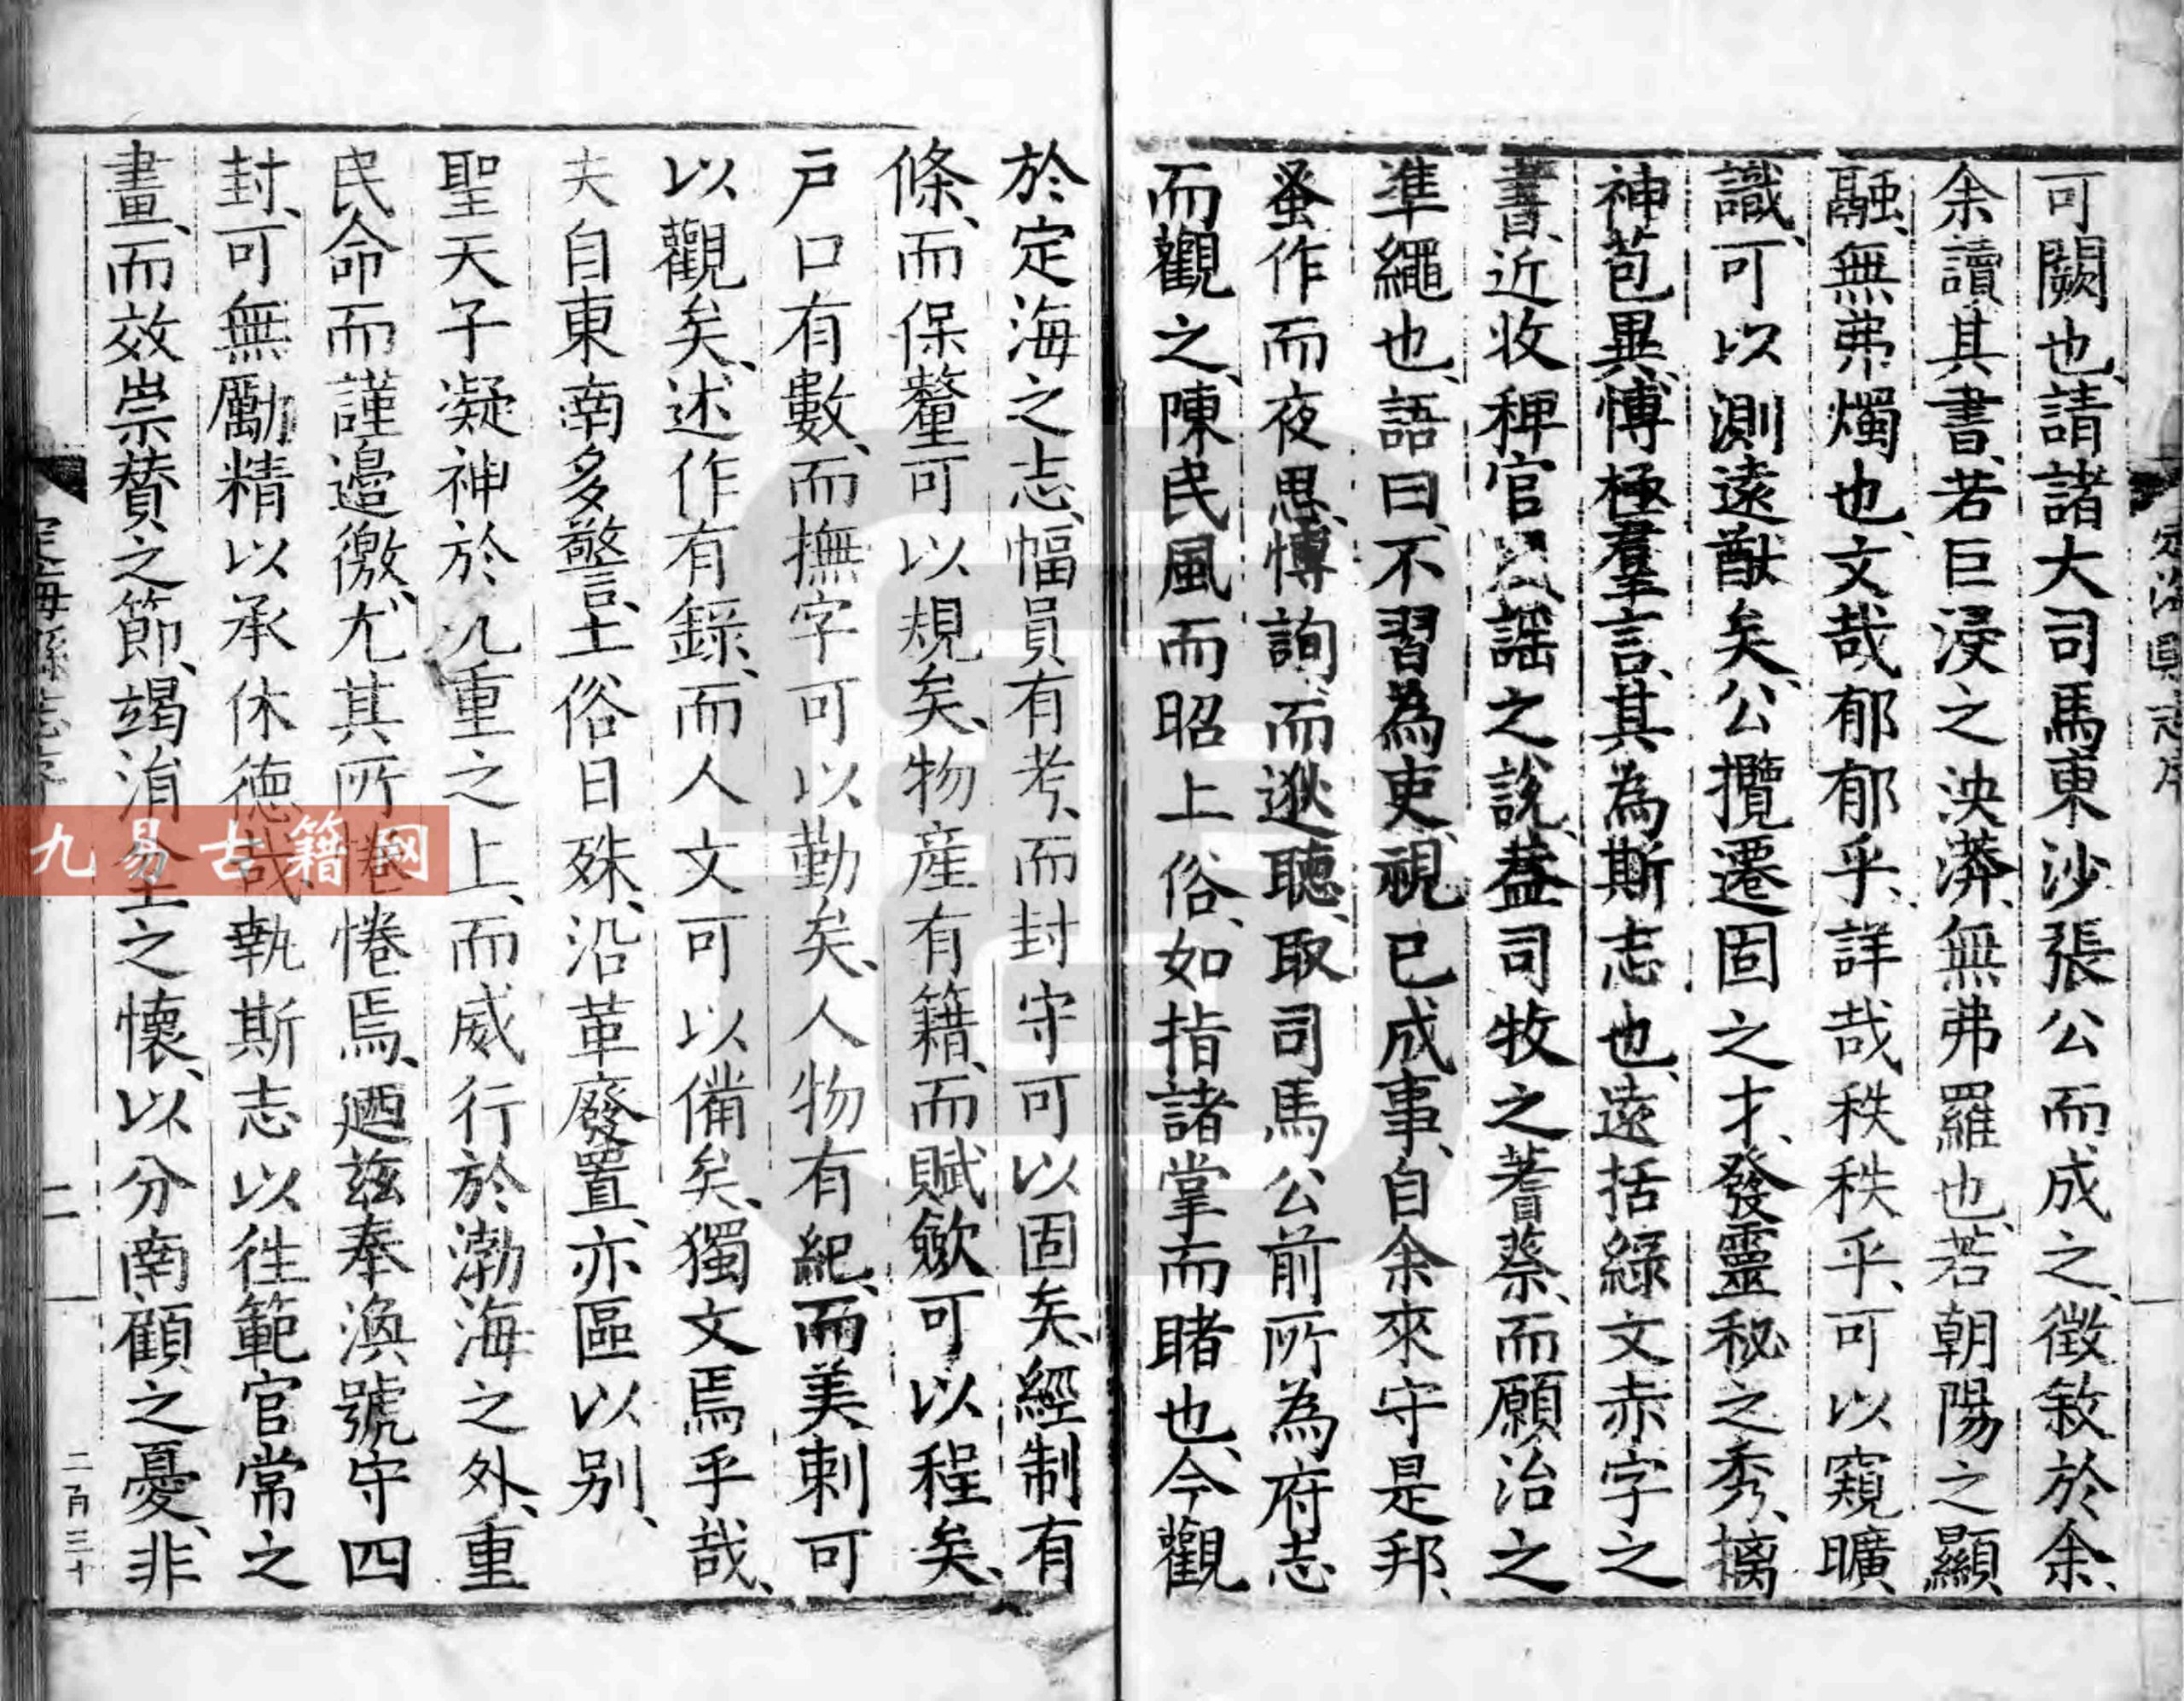 可闕也請諸大司馬東沙張公而成之徵敘於余
余讀其書若巨浸之泱漭無弗羅也若朝陽之顯
融無弗燭也文哉郁郁乎詳哉秩秩乎可以窺曠
識可以測遠猷矣公攬遷固之才發靈秘之秀摛
神苞異博極羣言其為斯志也遠括綠文赤字之
書近收稗官謡之說葢司牧之蓍蔡而願治之
準繩也語曰不習為吏視已成事自余來守是邦
蚤作而夜思博詢而逖聽取司馬公前所為府志
而觀之陳民風而昭上俗如指諸掌而睹也今觀
於定海之志幅員有考而封守可以固矣經制有
條而保釐可以規矣物産有籍而賦斂可以程矣
戶口有數而撫字可以勤矣人物有紀而美刺可
以觀矣述作有錄而人文可以備矣獨文焉乎哉
夫自東南多警土俗日殊沿革廢置亦區以别
聖天子凝神於九重之上而威行於渤海之外重
民命而謹邉徼尤其所惓惓焉廼兹奉渙號守四
封可無勵精以承休德哉執斯志以徃範官常之
畫而效崇賛之節竭涓之懷以分南顧之憂非
定海縣志序
二
二百三十
九易古籍网